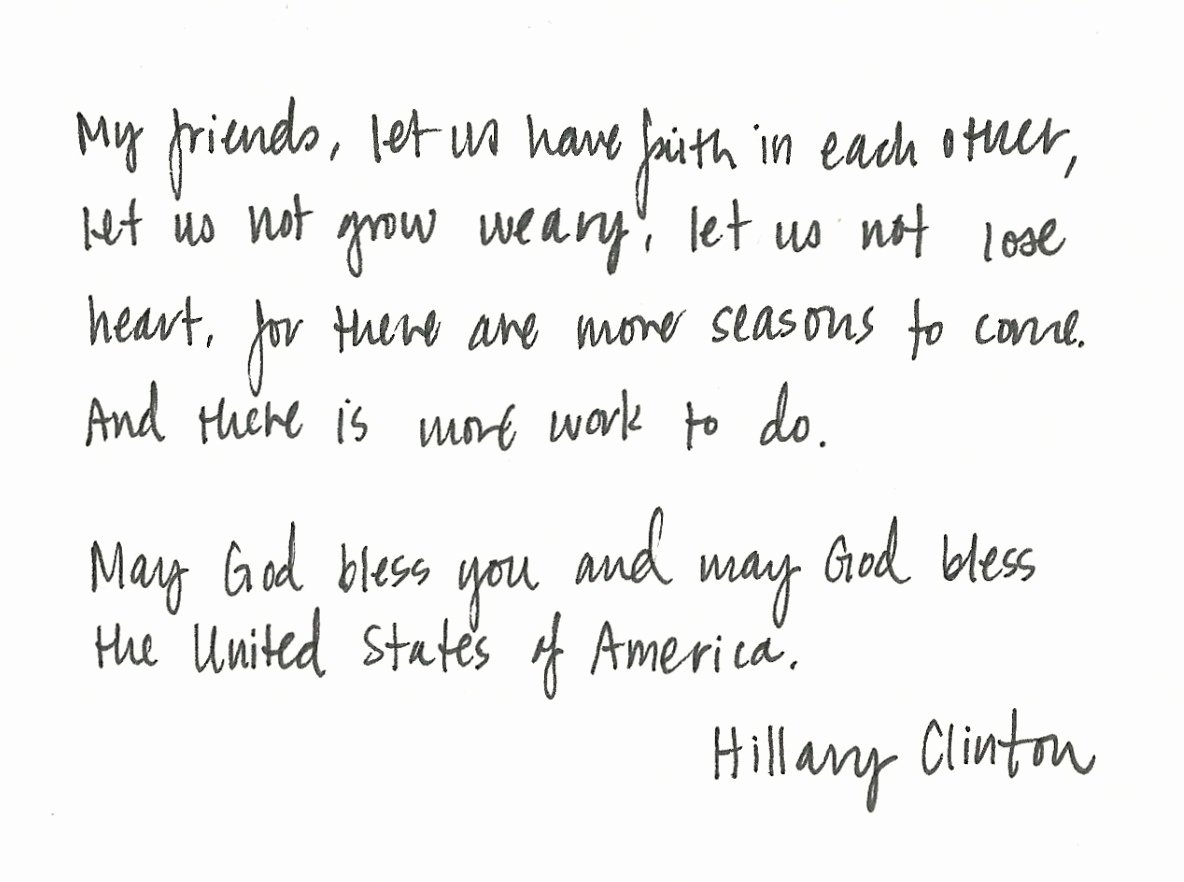 My friends, let us have faith in each other,
let us not grow weary, let us not lose
heart, for there are more seasons to come.
And there is more work to do.
May God bless you and may God bless
the United States of America.
Hillary Clinton